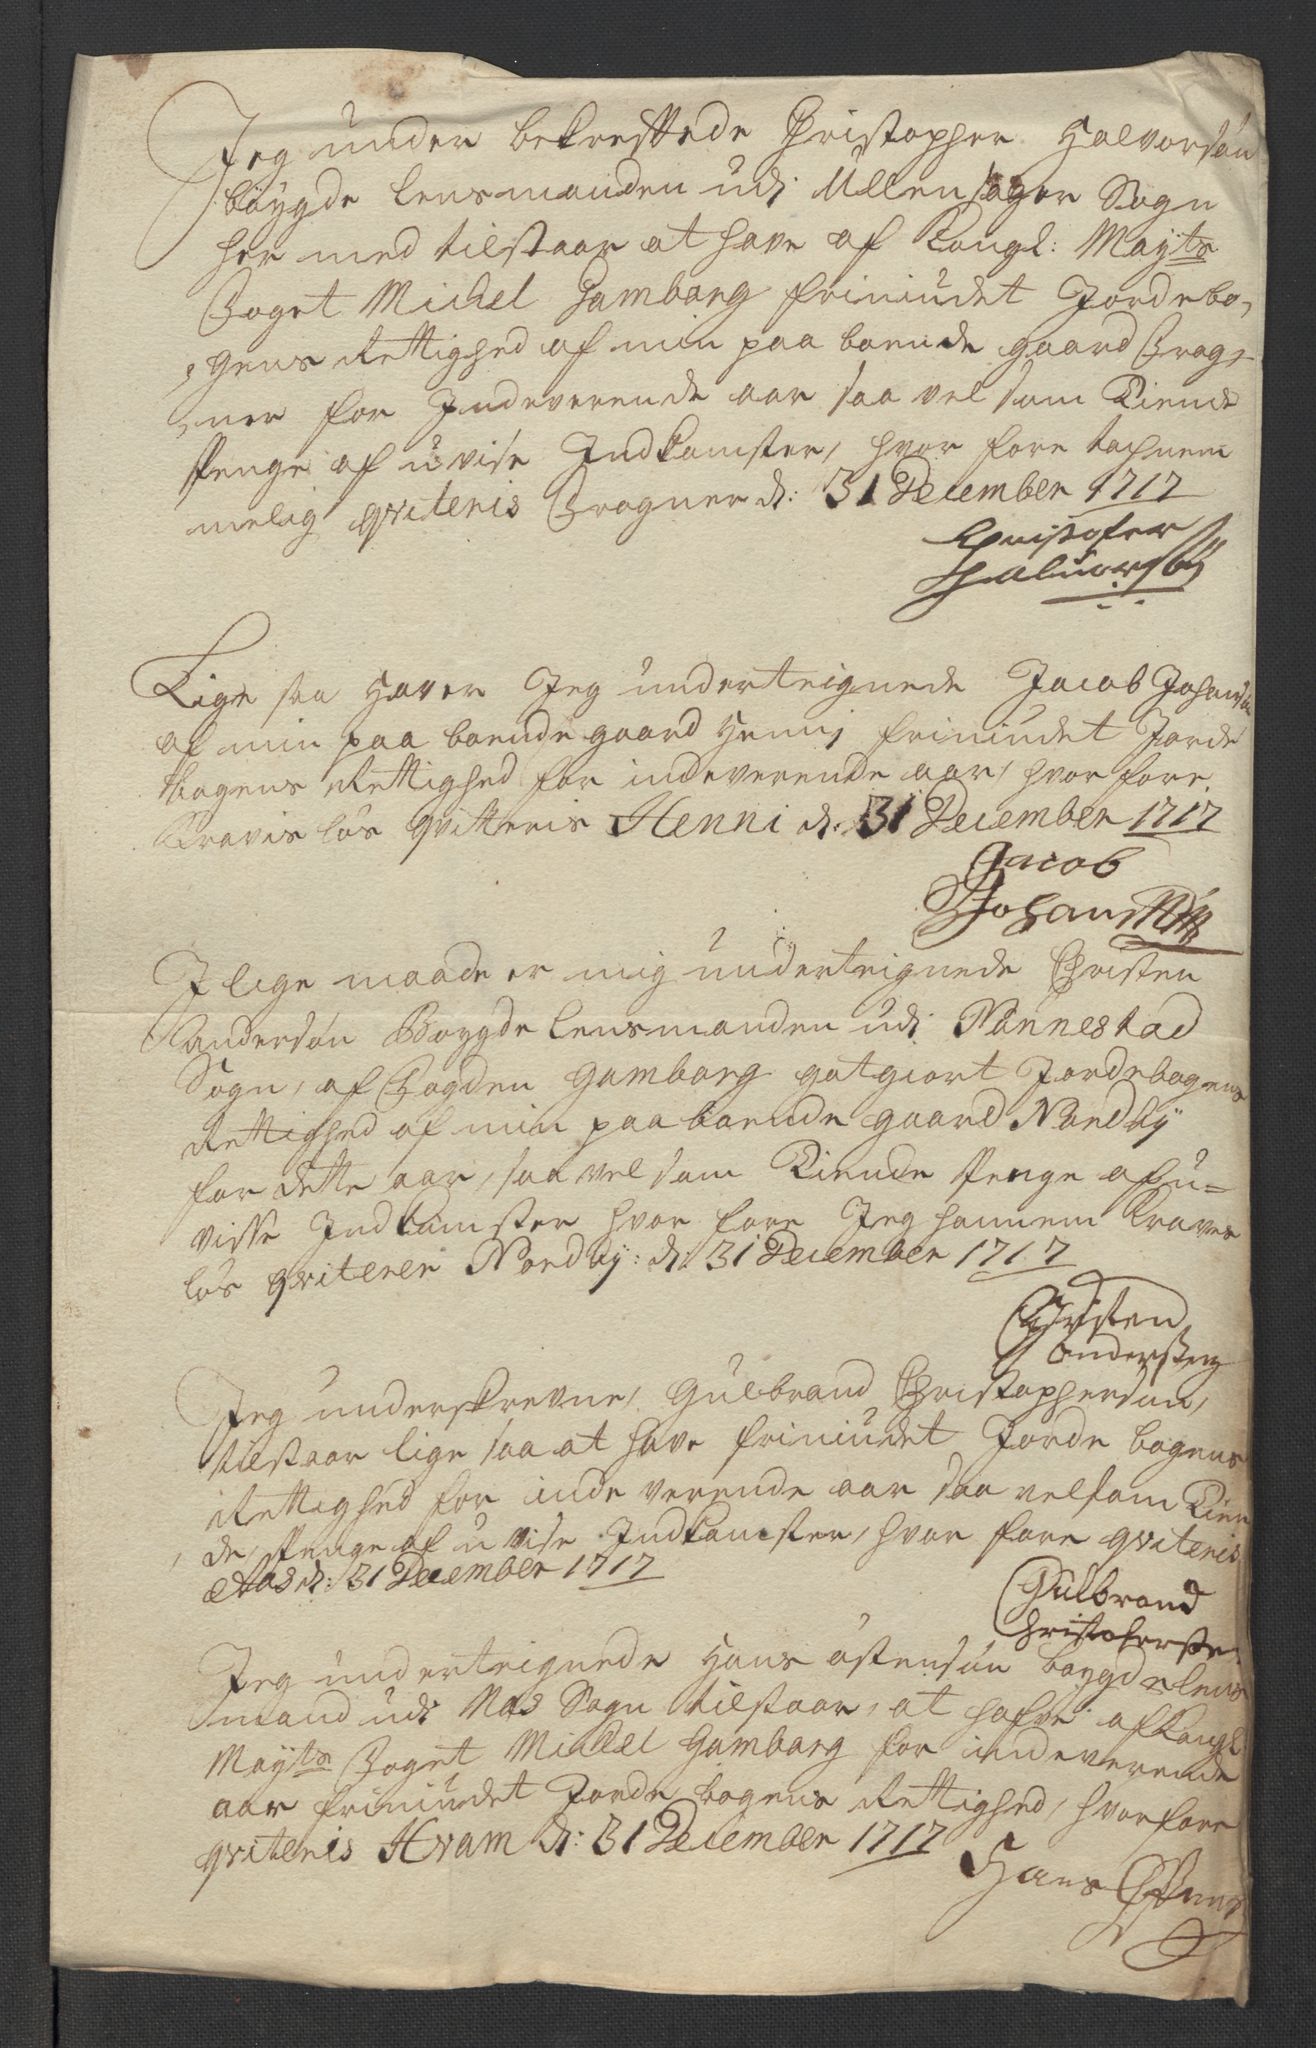 Jeg under bekreftede Christopher Halvorsøn
bøygde lensmanden udi Ullensager Sogn
her med tilstaar at have af Kongl: Mayts
Foget Michel Gamborg friniudet Jordebo,
,gens Rettighed af min paa boende gaard Frog,
,ner for Indeverende aar saa vel som Tiende
Penge af uvise Indkomster, hvor fore tachnem
melig qviteris Frogner d: 31 December 1717
Christofer
Haluorsøn
Lige saa Haver Jeg underteignede Jacob Johansøn
af min paa boende gaard Henni friniudet Jorde
bogens Rettighed for indeverende aar, hvor fore
Kravis løs qvitteris Henni d: 31 December 1717
Jacob
Johansøn
I lige maade er mig underteignede Christen
Andersøn Bøygde lensmanden udi Nannestad
Sogn, af Fogden Gamborg gotgiort Jordebogens
Rettighed af min paa boende gaard Nordby
for dette aar, saa vel som Tiende Penge af u=
visse Indkomster hvor fore Jeg hannem Kraves
løs qviterer Nordby: d: 31 December 1717
Christen
Andersen
Jeg underskrevne, Gulbrand Christophersøn,
tilstaar lige saa at have friniudet Jorde bogens
Rettighed for inde verende aar saa velsom Tien
,de, Penge af uvise Indkomster, hvor fore qviteris
Aas d: 31 December 1717
Gulbrand
Christofersen
Jeg underteignede Hans Østensøn bøygdelens
mand udi Næs Sogn tilstaar, at hafve af Kongl
Mayts Foget Michel Gamborg for indeverende
aar friniudet Jorde bogens Rettighed, hvorfore
qviteris Hvam d: 31 December 1717
Hans